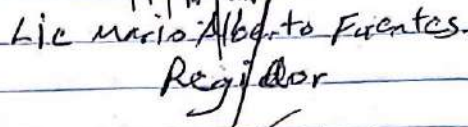 Lic Mario Alberto Fuentes.
Regidor